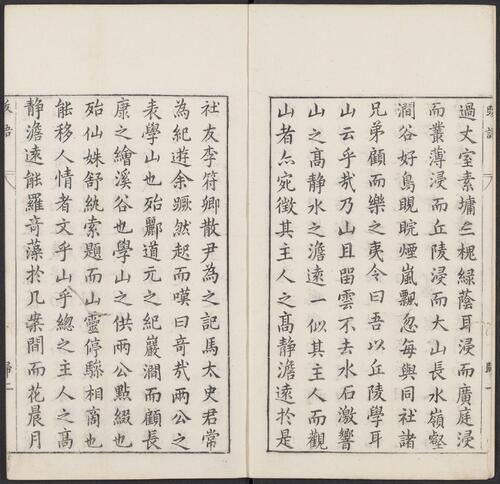 過丈室素墉亖槐綠蔭耳浸而廣庭浸
而叢薄浸而丘陵浸而大山長水嶺壑
澗谷好鳥睍睆煙嵐飄忽每與同社諸
兄弟顧而樂之夷令曰吾以丘陵學耳
山云乎㦲乃山且畱雲不去水石激響
山之髙靜水之澹遠一似其主人而觀
山者亦宛徴其主人之髙靜澹遠於是
社友李符卿散尹為之記馬太史君常
為紀遊余蹶然起而嘆曰奇㦲兩公之
表學山也殆酈道元之紀巖澗而顧長
康之繪溪谷也學山之供兩公點綴也
殆仙姝舒紈索題而山靈停驂相商也
能移人情者文乎山乎總之主人之髙
靜澹遠能羅奇藻於几案間而花晨月
跋語
歸二
歸一